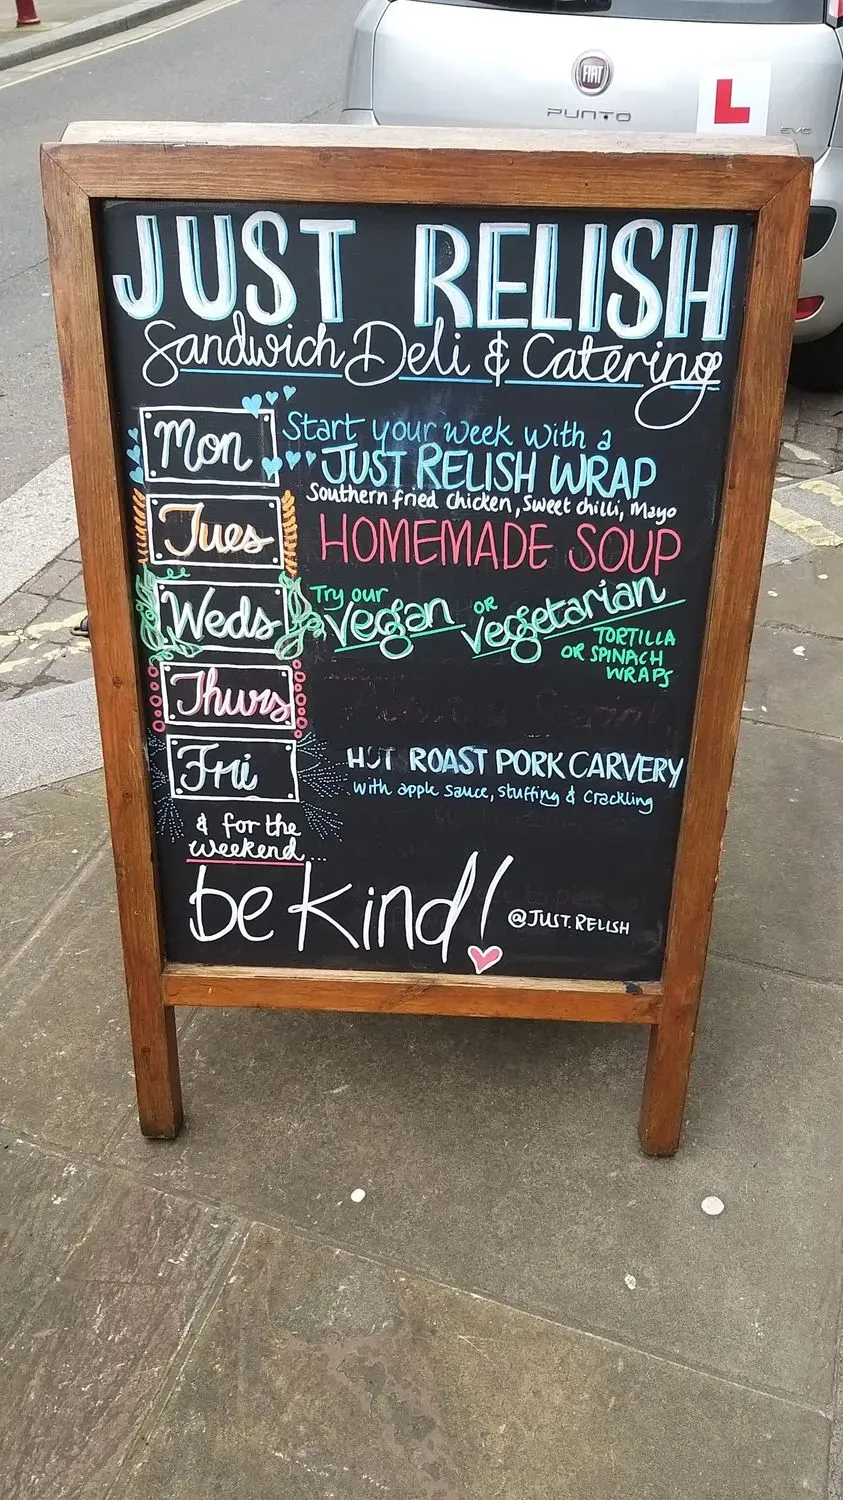 FIAT
PUNTO
L
EVO
JUST RELISH
Sandwich Deli & Catering
Mon
Start your week with a
JUST RELISH WRAP
Southern fried chicken, Sweet chilli, Mayo
Tues
HOMEMADE SOUP
Weds
Try our
Vegan OR Vegetarian
TORTILLA
OR SPINACH
WRAPS
Thurs
Fri
HOT ROAST PORK CARVERY
with apple sauce, stuffing & crackling
& for the
weekend...
be kind!
@JUST.RELISH